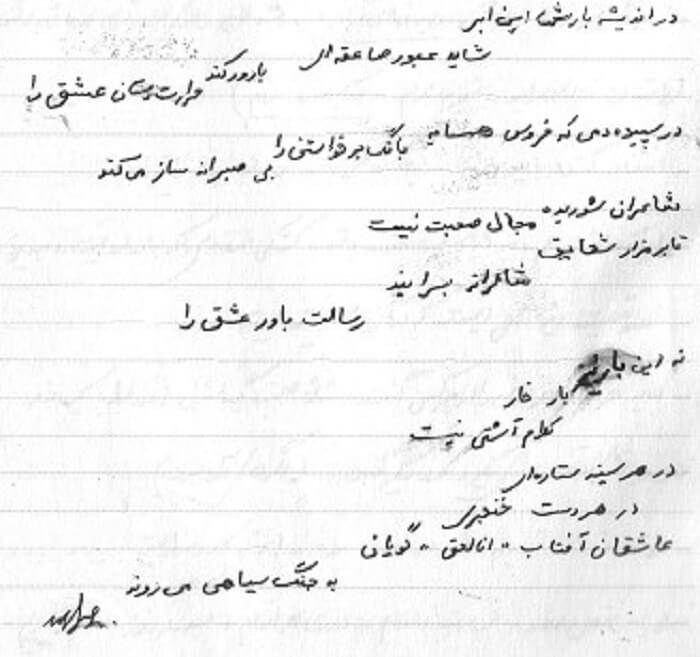 در اندیشه بارش این ابر
شاید عبور صاعقه‌ای
بارور کند
حرارت‌دستان عشق را
در سپیده‌دمی که خروس همسایه
بانگ برخاستنی را
بی صبرانه ساز می‌کند
شاعران شوریده
مجال صحبت نیست
تا بر مزار شقایق
شاعرانه بسرایند
رسالت باور عشق را
نه این بار
بار خار
کلام آشتی نیست
در هر سینه ستاره‌ای
در هر دست خنجری
عاشقان آفتاب "اناالحق" گویان
به جنگ سیاهی می‌روند